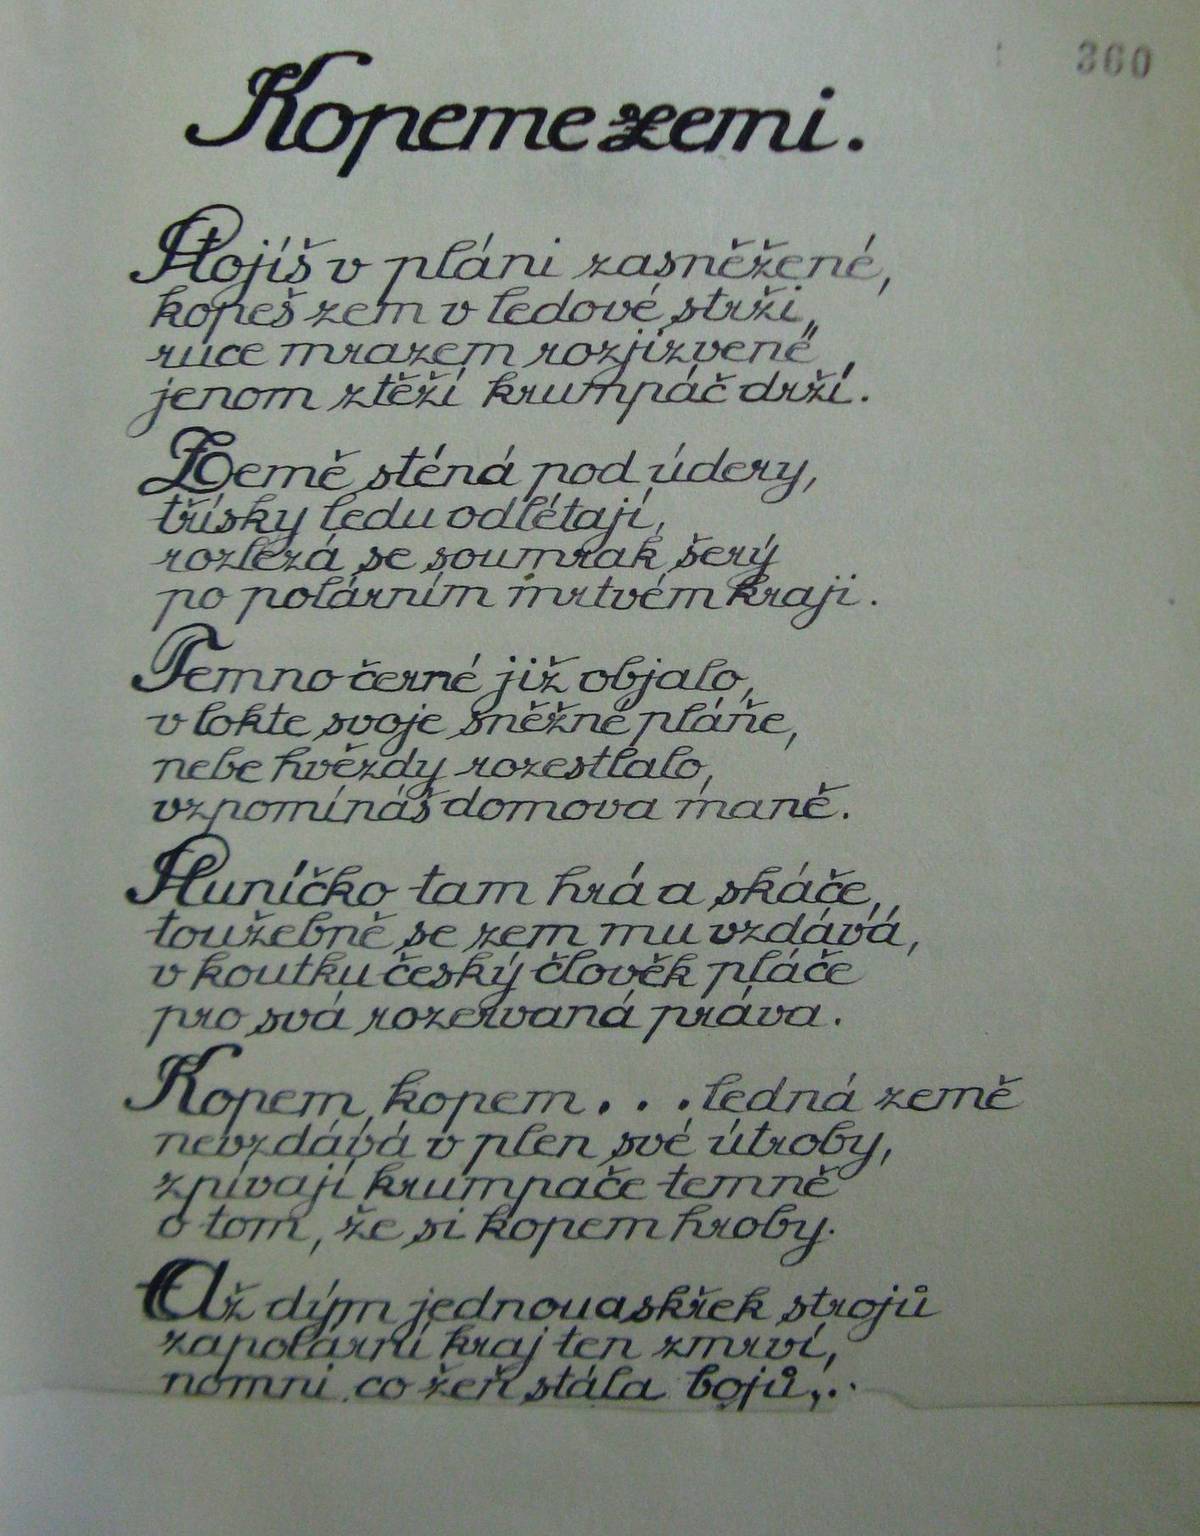 360
Kopeme zemi.
Stojíš v pláni zasněžené,
kopeš zem v ledové strži,
ruce mrazem rozjizvené
jenom ztěží krumpáč drží.
Země sténá pod údery,
třísky ledu odlétají,
rozlézá se soumrak šerý
po polárním mrtvém kraji.
Temno černé již objalo,
v lokte svoje sněžné pláňe,
nebe hvězdy rozestlalo,
vzpomínáš domova maně.
Sluníčko tam hrá a skáče,
toužebně se zem mu vzdává,
v koutku český člověk pláče
pro svá rozervaná práva.
Kopem, kopem... ledná země
nevzdává v plen své útroby,
zpívají krumpače temně
o tom, že si kopem hroby.
Až dým jednou a skřek strojů
zapolární kraj ten zmrví,
co žeň stála bojů,..